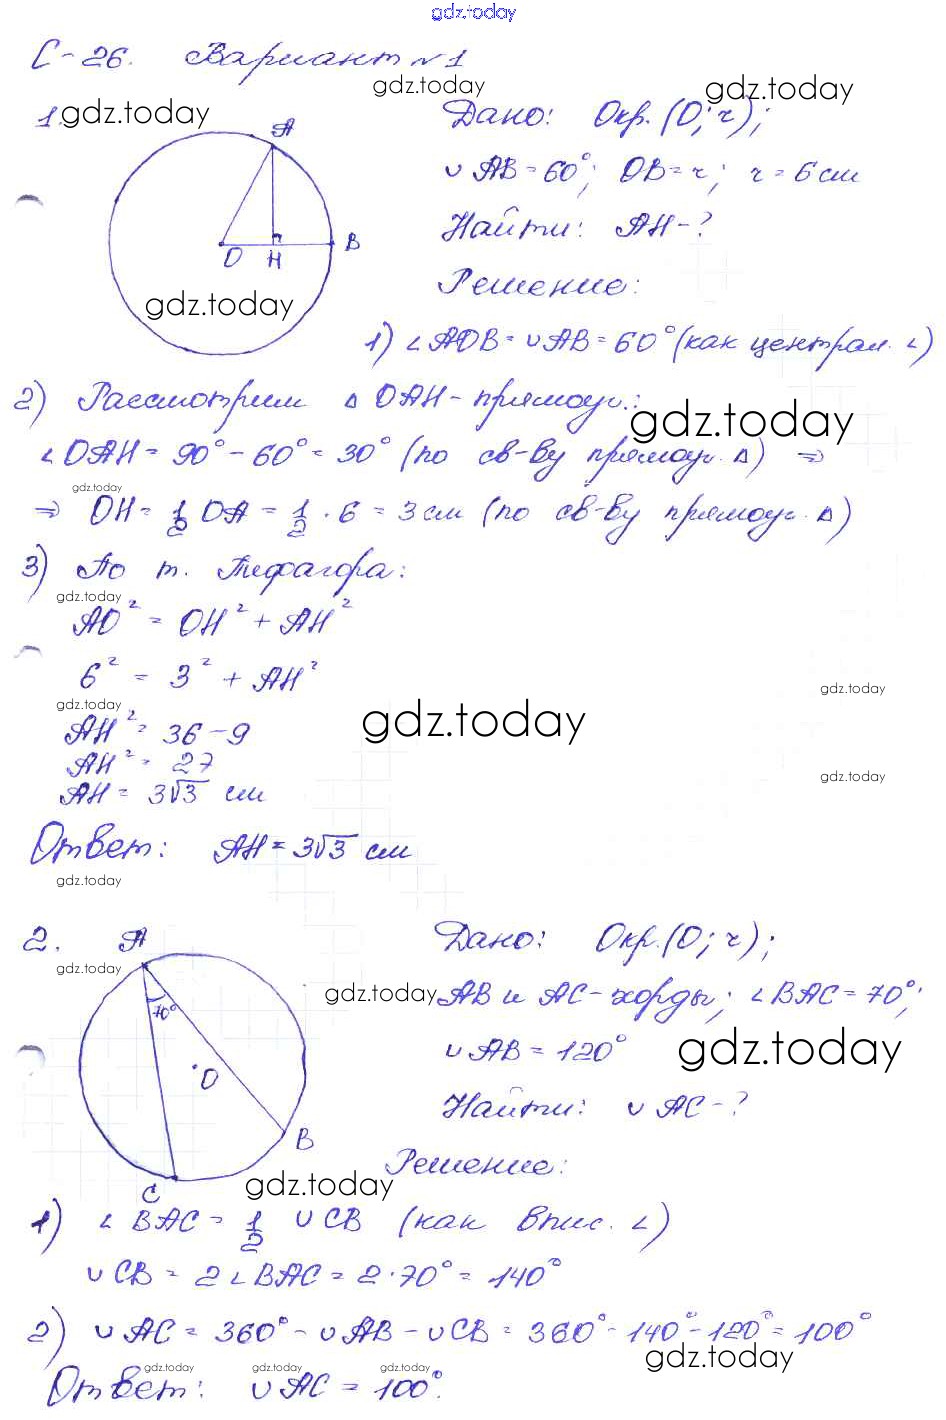 gdz.today
С-26. Вариант №1
gdz.today
gdz.today
1. gdz.today
A
O H B
gdz.today
Дано: Окр. (O; r);
∪ AB = 60°; OB = r; r = 6 см
Найти: AH - ?
Решение:
1) ∠ AOB = ∪ AB = 60° (как централ. ∠)
2) Рассмотрим △ OAH - прямоуг.:
gdz.today
∠ OAH = 90° - 60° = 30° (по св-ву прямоуг. △) ⇒
gdz.today
⇒ OH = 1/2 OA = 1/2 · 6 = 3 см (по св-ву прямоуг. △)
3) По т. Пифагора:
gdz.today
AO² = OH² + AH²
6² = 3² + AH²
gdz.today
gdz.today
gdz.today
AH² = 36 - 9
AH² = 27
gdz.today
AH = 3√3 см
Ответ: AH = 3√3 см
gdz.today
2.
gdz.today
A
70°
O
B
C
Дано: Окр. (O; r);
gdz.today
AB и AC - хорды; ∠ BAC = 70°;
∪ AB = 120°
gdz.today
Найти: ∪ AC - ?
Решение:
gdz.today
1) ∠ BAC = 1/2 ∪ CB (как впис. ∠)
∪ CB = 2 ∠ BAC = 2 · 70° = 140°
2) ∪ AC = 360° - ∪ AB - ∪ CB = 360° - 140° - 120° = 100°
gdz.today
gdz.today gdz.today gdz.today
Ответ: ∪ AC = 100°.